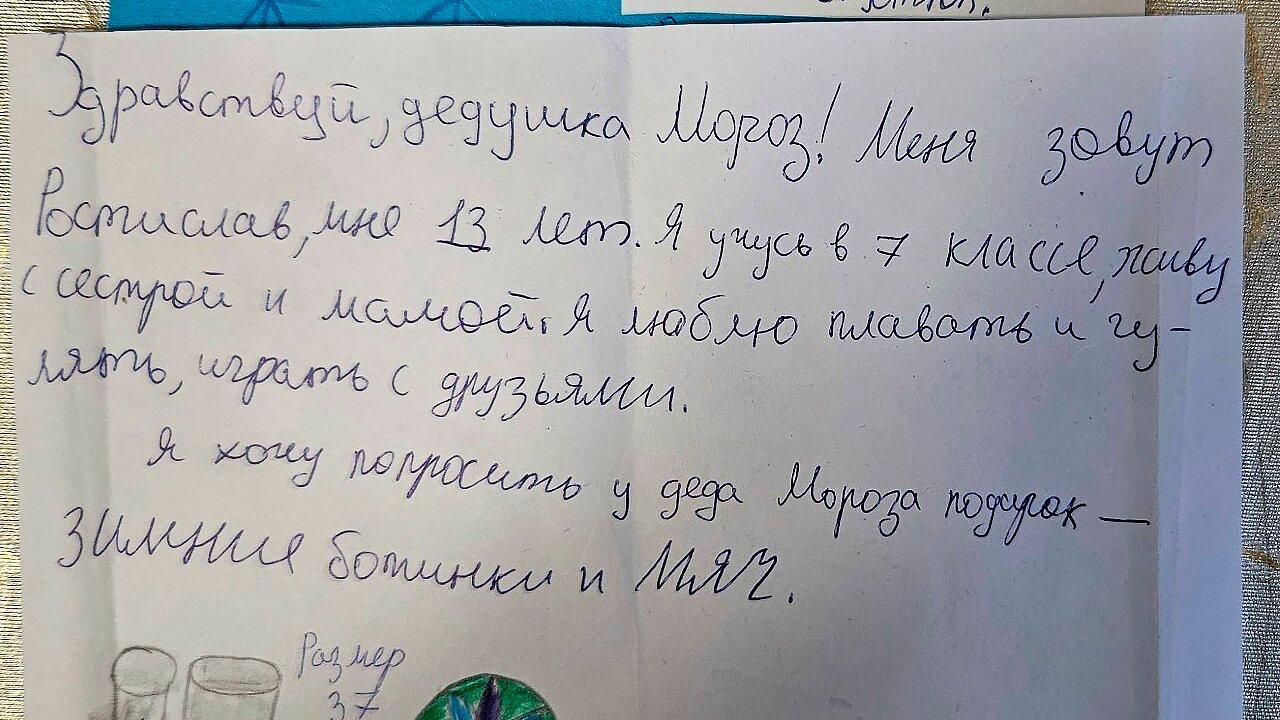 Здравствуй, дедушка Мороз! Меня зовут
Ростислав, мне 13 лет. Я учусь в 7 классе, живу
с сестрой и мамой. Я люблю плавать и гу-
лять, играть с друзьями.
Я хочу попросить у деда Мороза подарок —
зимние ботинки и МЯЧ.
Размер
37